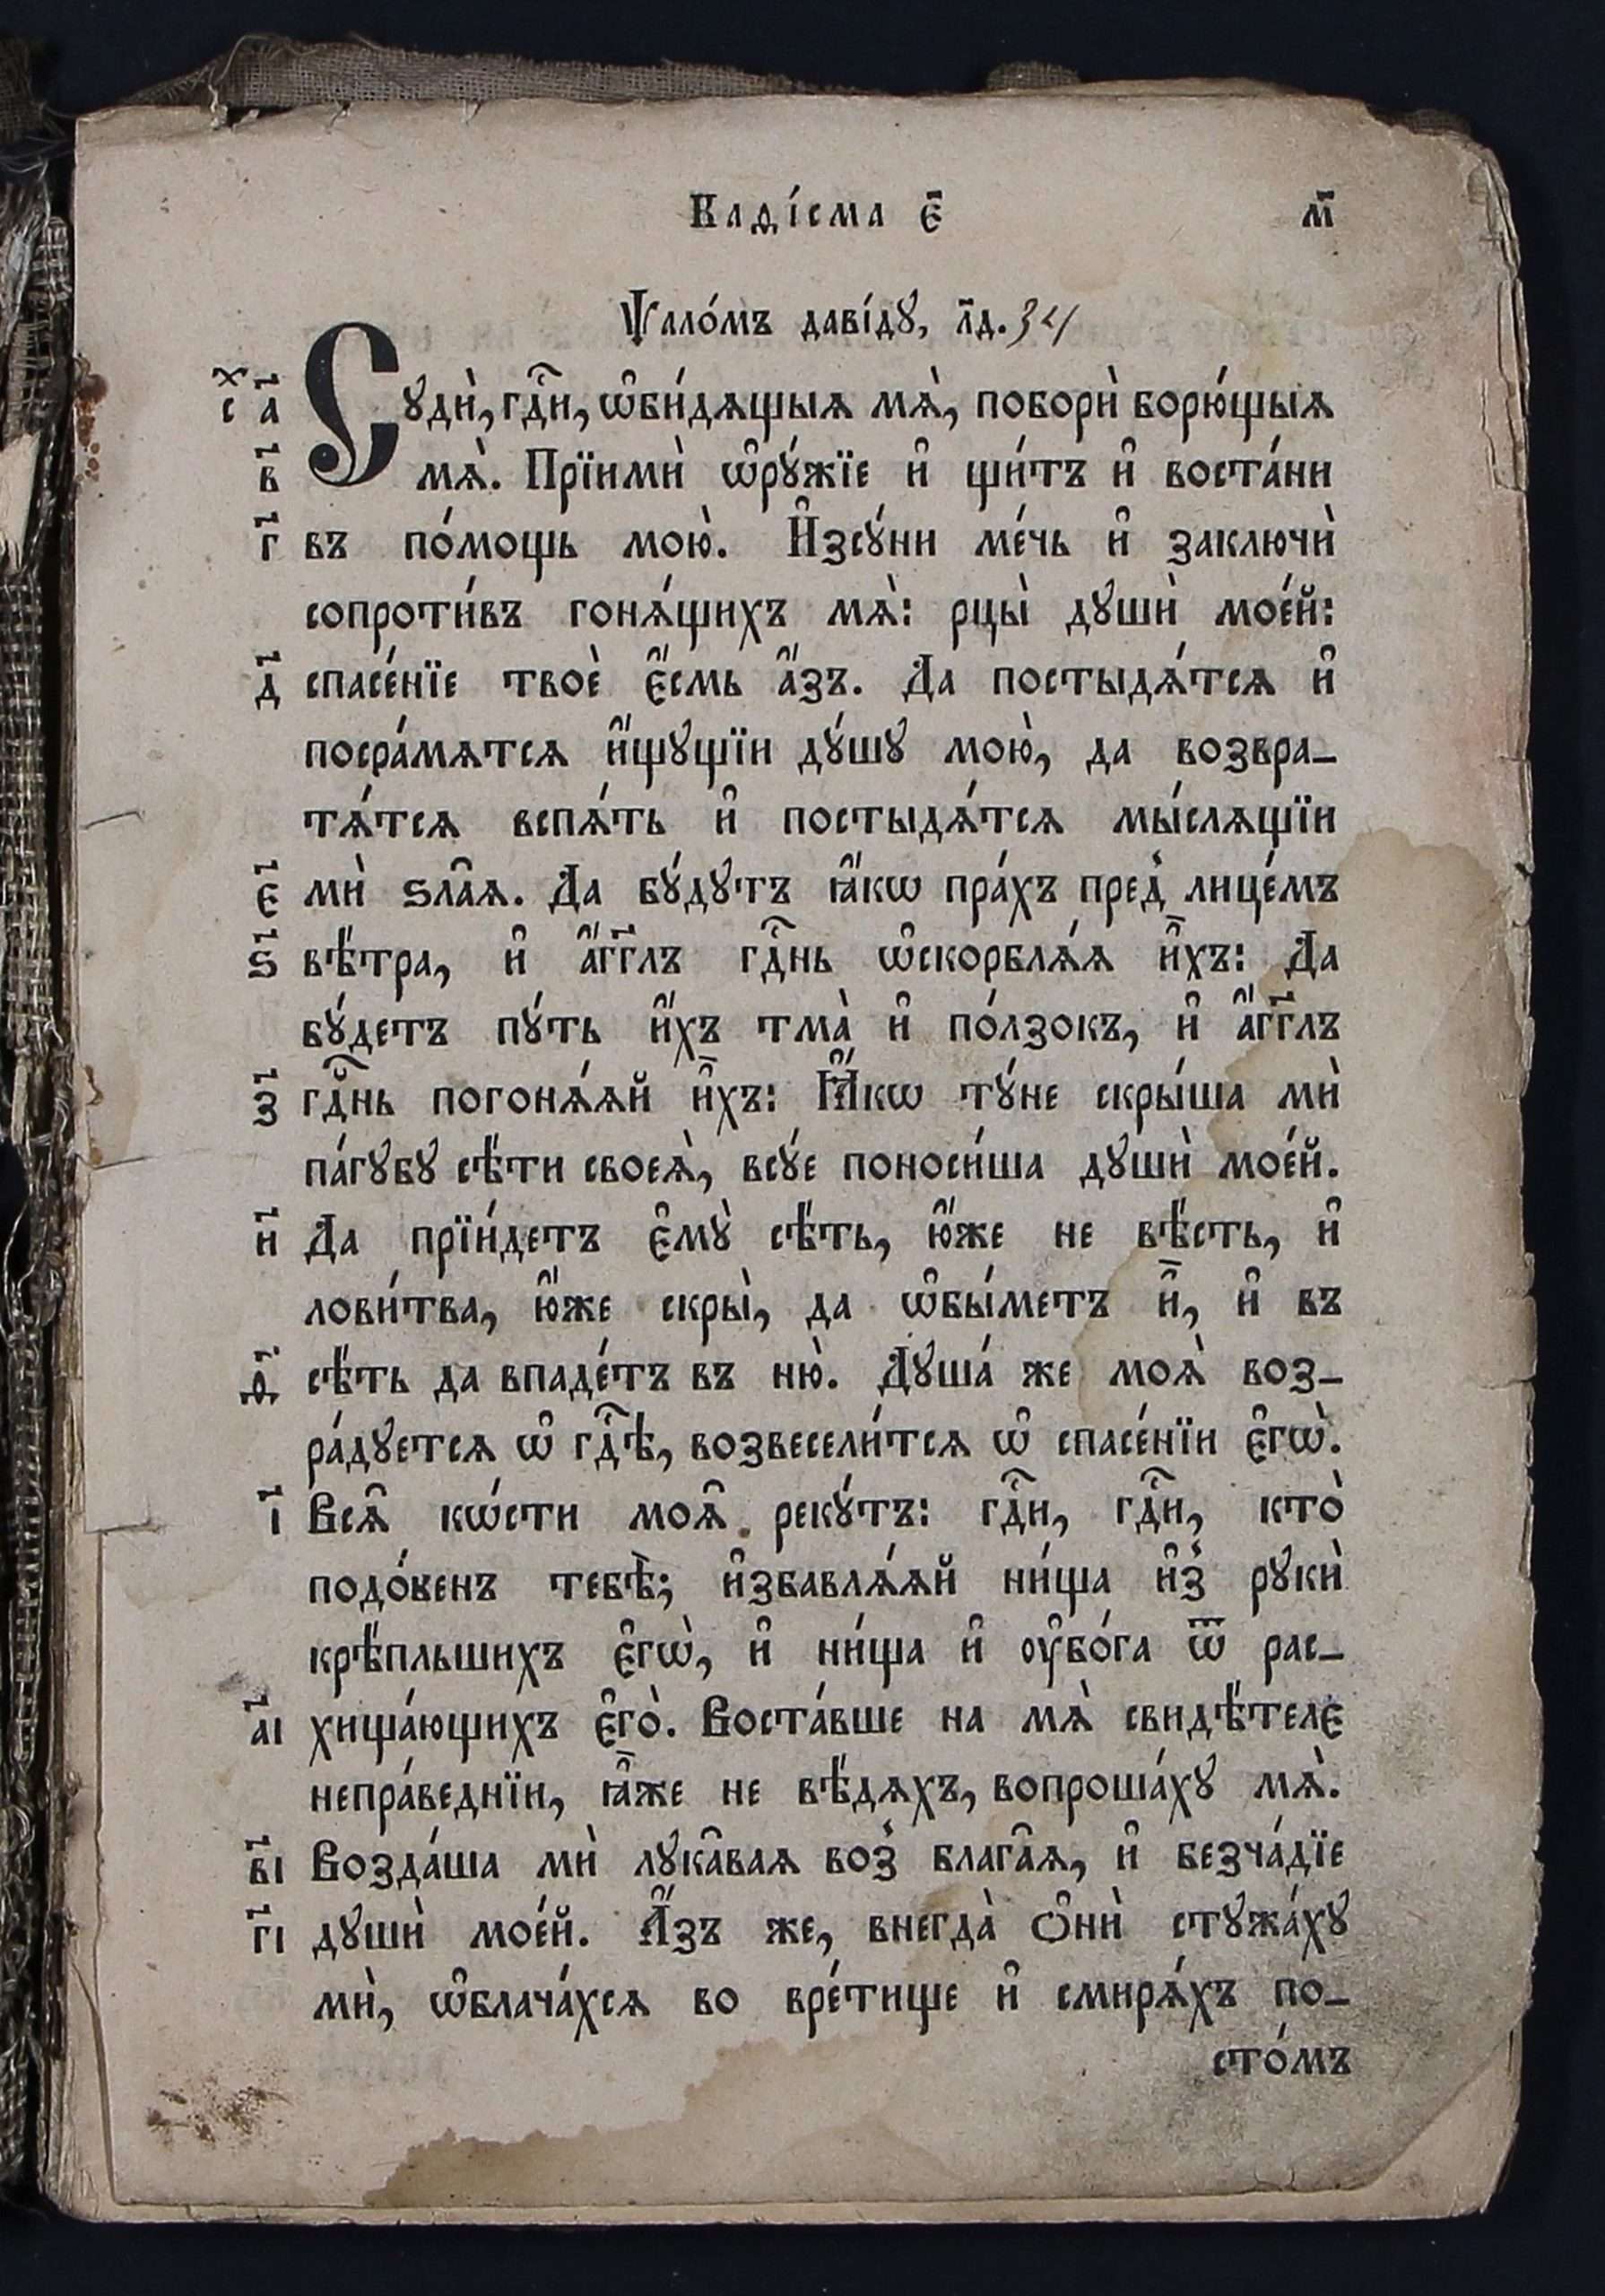 Каѳі́сма є҃ м҃
Ѱало́мъ даві́дꙋ, л҃д. 34
с҃ а҃ Сꙋдѝ, гдⷭ҇и, ѡ҆би́дѧщыѧ мѧ̀, поборѝ борю́щыѧ
в҃ мѧ̀. Прїимѝ ѻ҆рꙋ́жїе и҆ щи́тъ и҆ воста́ни
г҃ въ по́мощь мою̀. И҆зсꙋ́ни ме́чь и҆ заключѝ
сопроти́въ гонѧ́щихъ мѧ̀: рцы̀ дꙋшѝ мое́й:
д҃ спасе́нїе твоѐ є҆́смь а҆́зъ. Да постыдѧ́тсѧ и҆
посра́мѧтсѧ и҆́щꙋщїи дꙋ́шꙋ мою̀, да возвра-
тѧ́тсѧ вспѧ́ть и҆ постыдѧ́тсѧ мы́слѧщїи
є҃ мѝ ѕла̑ѧ. Да бꙋ́дꙋтъ ꙗ҆́кѡ пра́хъ пред̾ лице́мъ
ѕ҃ вѣ́тра, и҆ а҆́гг҃лъ гдⷭ҇нь ѡ҆скорблѧ́ѧ и҆̀хъ: Да
бꙋ́детъ пꙋ́ть и҆́хъ тма̀ и҆ по́лзокъ, и҆ а҆́гг҃лъ
з҃ гдⷭ҇нь погонѧ́ѧй и҆̀хъ: Ꙗ҆́кѡ тꙋ́не скры́ша мѝ
па́гꙋбꙋ сѣ́ти своеѧ̀, всꙋ́е поноси́ша дꙋшѝ мое́й.
и҃ Да прїи́детъ є҆мꙋ̀ сѣ́ть, ю҆́же не вѣ́сть, и҆
лови́тва, ю҆́же скры̀, да ѡ҆бы́метъ и҆̀, и҆ въ
ѳ҃ сѣ́ть да впаде́тъ въ ню̀. Дꙋша́ же моѧ̀ воз-
ра́дꙋетсѧ ѡ҆ гдⷭ҇ѣ, возвесели́тсѧ ѡ҆ спасе́нїи є҆гѡ̀.
і҃ Всѧ̑ кѡ́сти моѧ̑ рекꙋ́тъ: гдⷭ҇и, гдⷭ҇и, кто̀
подо́бенъ тебѣ̀; и҆збавлѧ́ѧй ни́ща и҆з̾ рꙋкѝ
крѣ́пльшихъ є҆гѡ̀, и҆ ни́ща и҆ ᲂу҆бо́га ѿ рас-
а҃і хища́ющихъ є҆го̀. Воста́вше на мѧ̀ свидѣ́телє
непра́веднїи, ꙗ҆̀же не вѣ́дѧхъ, вопроша́хꙋ мѧ̀.
в҃і Возда́ша мѝ лꙋка̑ваѧ воз̾ блага̑ѧ, и҆ безча́дїе
г҃і дꙋшѝ мое́й. А҆́зъ же, внегда̀ ѻ҆нѝ стꙋжа́хꙋ
мѝ, ѡ҆блача́хсѧ во вре́тище и҆ смирѧ́хъ по-
сто́мъ